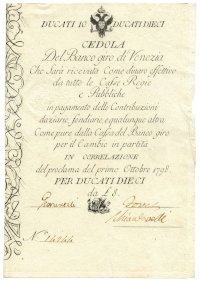 DUCATI 10 DUCATI DIECI
CEDOLA
Del Banco giro di Venezia
Che Sarà ricevuta Come dinaro effettivo
da tutte le Casse Regie
e Pubbliche
in pagamento delle Contribuzioni
daziarie, fondiarie, e qualunque altra
Come pure dalla Cassa del Banco giro
per il Cambio in partita
IN CORRELAZIONE
del proclama del primo Ottobre 1798
PER DUCATI DIECI
da L 8.
N.º